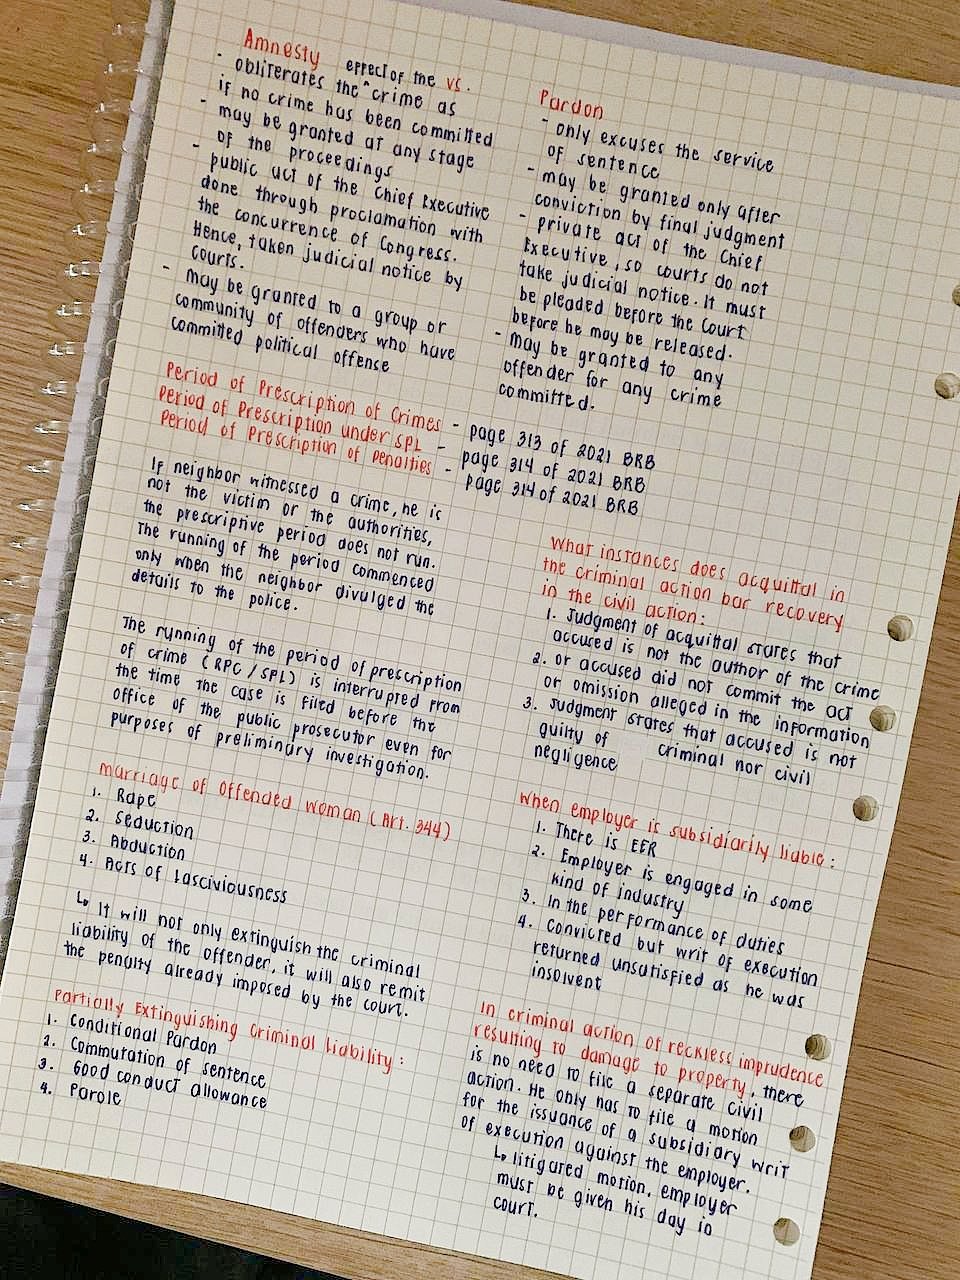 Amnesty vs.
- obliterates the ^effect of the crime as
if no crime has been committed
- may be granted at any stage
of the proceedings
- public act of the Chief Executive
done through proclamation with
the concurrence of Congress.
Hence, taken judicial notice by
courts.
- may be granted to a group or
community of offenders who have
committed political offense
Pardon
- only excuses the service
of sentence
- may be granted only after
conviction by final judgment
- private act of the Chief
Executive, so courts do not
take judicial notice. It must
be pleaded before the court
before he may be released.
- may be granted to any
offender for any crime
committed.
Period of Prescription of Crimes - page 313 of 2021 BRB
Period of Prescription under SPL - page 314 of 2021 BRB
Period of Prescription of Penalties - page 314 of 2021 BRB
If neighbor witnessed a crime, he is
not the victim or the authorities,
the prescriptive period does not run.
The running of the period commenced
only when the neighbor divulged the
details to the police.
The running of the period of prescription
of crime (RPC / SPL) is interrupted from
the time the case is filed before the
office of the public prosecutor even for
purposes of preliminary investigation.
Marriage of Offended Woman (Art. 344)
1. Rape
2. Seduction
3. Abduction
4. Acts of Lasciviousness
↳ It will not only extinguish the criminal
liability of the offender, it will also remit
the penalty already imposed by the court.
Partially Extinguishing Criminal Liability:
1. Conditional Pardon
2. Commutation of sentence
3. Good conduct allowance
4. Parole
What instances does acquittal in
the criminal action bar recovery
in the civil action:
1. Judgment of acquittal states that
accused is not the author of the crime
2. or accused did not commit the act
or omission alleged in the information
3. Judgment states that accused is not
guilty of criminal nor civil
negligence
When employer is subsidiarily liable:
1. There is EER
2. Employer is engaged in some
kind of industry
3. In the performance of duties
4. Convicted but writ of execution
returned unsatisfied as he was
insolvent
In criminal action of reckless imprudence
resulting to damage to property, there
is no need to file a separate civil
action. He only has to file a motion
for the issuance of a subsidiary writ
of execution against the employer.
↳ litigated motion, employer
must be given his day in
court.